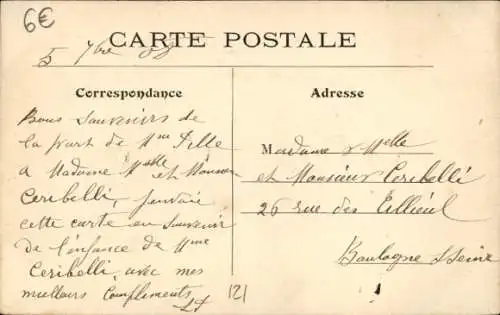 6€
5 7bre 08
CARTE POSTALE
Correspondance
Adresse
Bons souvenirs de
la part de Mme Pille
a Madame Melle et Monsieur
Ceribelli, j'envoie
cette carte en souvenir
de l'enfance de Mme
Ceribelli, avec mes
meilleurs Compliments
121
Madame & Melle
et Monsieur Ceribelli
26 rue des Tilleul
Boulogne s Seine